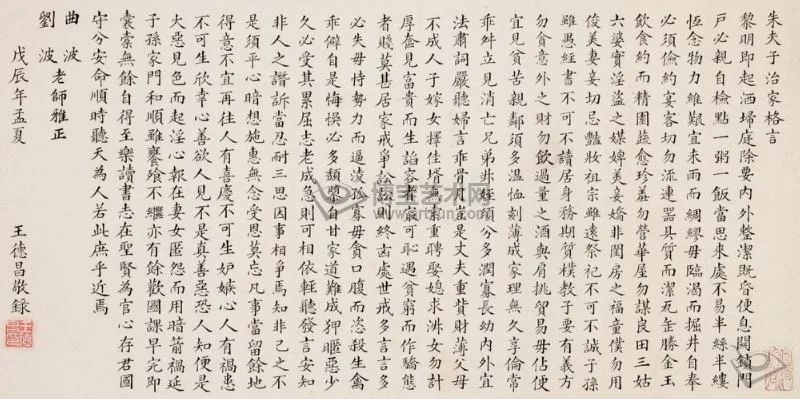 朱夫子治家格言
黎明即起洒掃庭除要內外整潔既昏便息關鎖門
戶必親自檢點一粥一飯當思來處不易半絲半縷
恆念物力維艱宜未雨而綢繆毋臨渴而掘井自奉
必須儉約宴客切勿流連器具質而潔瓦缶勝金玉
飲食約而精園蔬愈珍羞勿營華屋勿謀良田三姑
六婆實淫盜之媒婢美妾嬌非閨房之福童僕勿用
俊美妻妾切忌艷妝祖宗雖遠祭祀不可不誠子孫
雖愚經書不可不讀居身務期質樸教子要有義方
勿貪意外之財勿飲過量之酒與肩挑貿易毋佔便
宜見貧苦親鄰須多溫恤刻薄成家理無久享倫常
乖舛立見消亡兄弟叔姪須分多潤寡長幼內外宜
法肅詞嚴聽婦言乖骨肉豈是丈夫重貲財薄父母
不成人子嫁女擇佳壻毋索重聘娶媳求淑女勿計
厚奩見富貴而生諂容者最可恥遇貧窮而作驕態
者賤莫甚居家戒爭訟訟則終凶處世戒多言言多
必失毋恃勢力而逼凌孤寡毋貪口腹而恣殺生禽
乖僻自是悔悞必多頹惰自甘家道難成狎暱惡少
久必受其累屈志老成急則可相依輕聽發言安知
非人之譖訴當忍耐三思因事相爭焉知非己之不
是須平心暗想施惠無念受恩莫忘凡事當留餘地
得意不宜再往人有喜慶不可生妒嫉心人有禍患
不可生欣幸心善欲人見不是真善惡恐人知便是
大惡見色而起淫心報在妻女匿怨而用暗箭禍延
子孫家門和順雖饔飧不繼亦有餘歡國課早完即
囊橐無餘自得至樂讀書志在聖賢為官心存君國
守分安命順時聽天為人若此庶乎近焉
曲波
劉波
老師雅正
戊辰年孟夏
王德昌敬錄
博宝艺术网